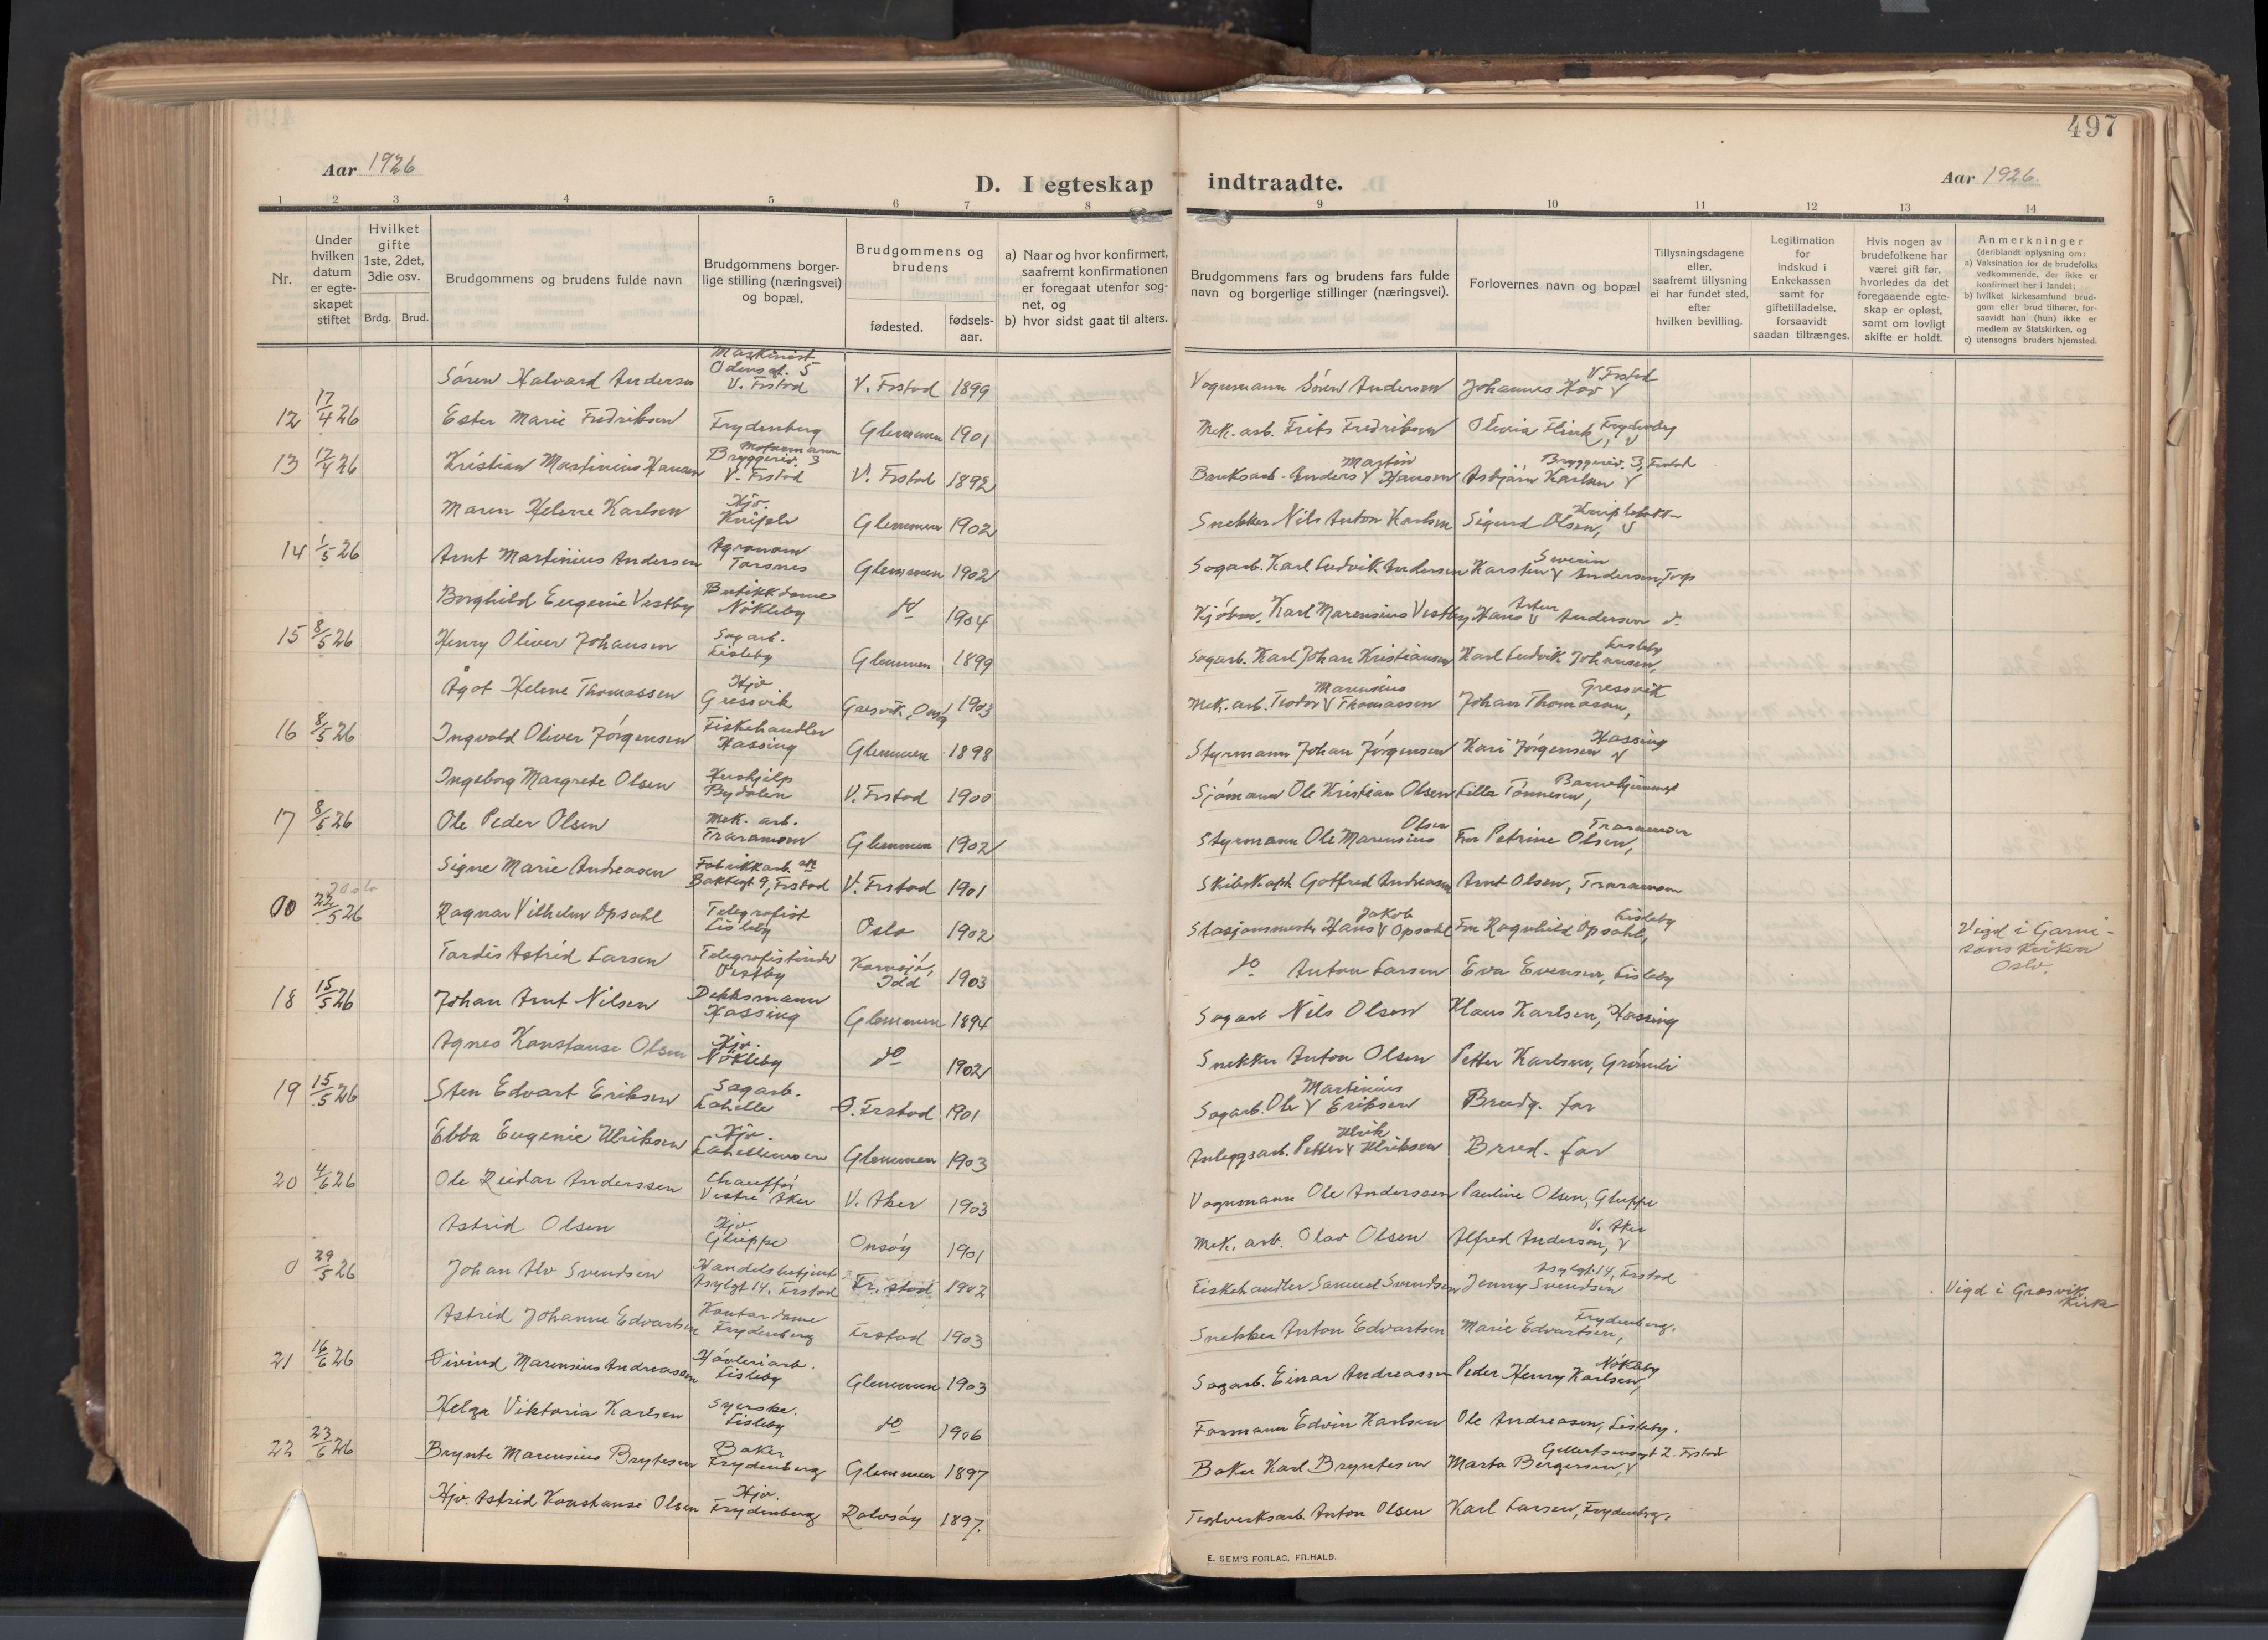 497
Aar 1926
D. I egteskap indtraadte.
Aar 1926.
1 2 3 4 5 6 7 8 9 10 11 12 13 14
Nr.
Under hvilken datum er egte-skapet stiftet
Hvilket gifte 1ste, 2det, 3die osv.
Brdg. Brud.
Brudgommens og brudens fulde navn
Brudgommens borger-lige stilling (næringsvei) og bopæl.
Brudgommens og brudens
fødested.
fødsels-aar.
a) Naar og hvor konfirmert, saafremt konfirmationen er foregaat utenfor sog-net, og
b) hvor sidst gaat til alters.
Brudgommens fars og brudens fars fulde navn og borgerlige stillinger (næringsvei).
Forlovernes navn og bopæl
Tillysningsdagene eller, saafremt tillysning ei har fundet sted, efter hvilken bevilling.
Legitimation for indskud i Enkekassen samt for giftetilladelse, forsaavidt saadan tiltrænges.
Hvis nogen av brudefolkene har været gift før, hvorledes da det foregaaende egte-skap er opløst, samt om lovligt skifte er holdt.
Anmerkninger
(deriblandt oplysning om:
a) Vaksination for de brudefolks vedkommende, der ikke er konfirmert her i landet;
b) hvilket kirkesamfund brud-gom eller brud tilhører, for-saavidt han (hun) ikke er medlem av Statskirken, og
c) utensogns bruders hjemsted.
Søren Halvard Andersen Maskinist Odensgt. 5 V. Frstad V. Frstad 1899 Vognmann Sören Andersen Johannes Hov V. Frstad
12 17/4 26 Ester Marie Fredriksen Frydenberg Glemmen 1901 Mek. arb. Frits Fredriksen Olivia Flink, Frydenberg
13 17/4 26 Kristian Martinius Hansen Bryggeriv. 3 V. Frstad V. Frstad 1892 Bruksarb. Anders Martin Hansen Asbjørn Karlsen Bryggeriv. 3, Frstad
Maren Helene Karlsen Hjv. Kniple Glemmen 1902 Snekker Nils Anton Karlsen Sigurd Olsen,
14 1/5 26 Arnt Martinius Andersen Agronom Torsnes Glemmen 1902 Sagarb. Karl Ludvik Andersen Karsten Severin Andersen, Torp
Borghild Eugenie Vestby Butikkdame Nökleby do 1904 Kjøbm. Karl Marensius Vestby Hans Artur Anderson d.
15 8/5 26 Henry Oliver Johansen Sagarb. Lisleby Glemmen 1899 Sagarb. Karl Johan Kristiansen Karl Ludvik Johansen, Lisleby
Ågot Helene Thomassen Hjv Gressvik Gresvik, Onsøy 1903 Mek. arb. Teodor Marensius Thomassen Johan Thomassen, Gressvik
16 8/5 26 Ingvald Oliver Jørgensen Fiskehandler Hassing Glemmen 1898 Styrmann Johan Jørgensen Kari Jørgensen Hassing
Ingeborg Margrete Olsen Hushjelp Bydalen V. Frstad 1900 Sjømann Ole Kristian Olsen Lilla Tønnesen, Barnehjemmet
17 8/5 26 Ole Peder Olsen Mek. arb. Traramoen Glemmen 1902 Styrmann Ole Marensius Olsen Fru Petrine Olsen, Traramoen
Signe Marie Andreasen Fabrikkarb. Bakkegt 9, Frstad V. Frstad 1901 Skibskapt. Gotfred Andreasen Arnt Olsen, Traramoen
00 Oslo 22/5 26 Ragnar Vilhelm Opsahl Telegrafist Lisleby Oslo 1902 Stasjonsmester Hans Jakob Opsahl Fru Ragnhild Opsahl, Lisleby Vigd i Garni-sonskirken Oslo.
Tordis Astrid Larsen Telegrafistinde Vestby Kornsjø, Idd 1903 do Anton Larsen Eva Evensen, Lisleby
18 15/5 26 Johan Arnt Nilsen Dekksmann Hassing Glemmen 1894 Sagarb Nils Olsen Klaus Karlsen, Hassing
Agnes Konstanse Olsen Hjv. Nökleby do 1902 Snekker Anton Olsen Petter Karlsen, Grønli
19 15/5 26 Sten Edvart Eriksen Sagarb. Lahelle Ø. Frstad 1901 Sagarb. Ole Martinius Eriksen Brudg. far
Ebba Eugenie Ulriksen Hjv. Lahellemoen Glemmen 1903 Anleggsarb. Petter Ulrik Ulriksen Brud. far
20 4/6 26 Ole Reidar Anderssen Chauffør Vestre Aker V. Aker 1903 Vognmann Ole Anderssen Pauline Olsen, Gluppe
Astrid Olsen Hjv. Gluppe Onsøy 1901 Mek. arb. Olav Olsen Alfred Andersen, V. Aker
0 29/5 26 Johan Alv Svendsen Handelsbetjent Asylgt 14. Frstad Fr. stad 1902 Fiskehandler Samuel Svendsen Jenny Svendsen Asylgt 14, Frstad Vigd i Gresvik Kirke
Astrid Johanne Edvartsen Kontordame Frydenberg Frstad 1903 Snekker Anton Edvartsen Marie Edvartsen, Frydenberg.
21 16/6 26 Øivind Marensius Andreassen Høvleriarb. Lisleby Glemmen 1903 Sagarb. Einar Andreassen Peder Henry Karlsen, Nökleby
Helga Viktoria Karlsen Syerske. Lisleby do 1906 Formann Edvin Karlsen Ole Andreasen, Lisleby.
22 23/6 26 Brynte Marensius Bryntesen Baker Frydenberg Glemmen 1897 Baker Karl Bryntesen Marta Børgersen, Gellertsensgt 2. Frstad
Hjv. Astrid Konstanse Olsen Hjv. Frydenberg Rolvsøy 1897. Teglverksarb. Anton Olsen Karl Larsen, Frydenberg.
E. SEM'S FORLAG, FR.HALD.